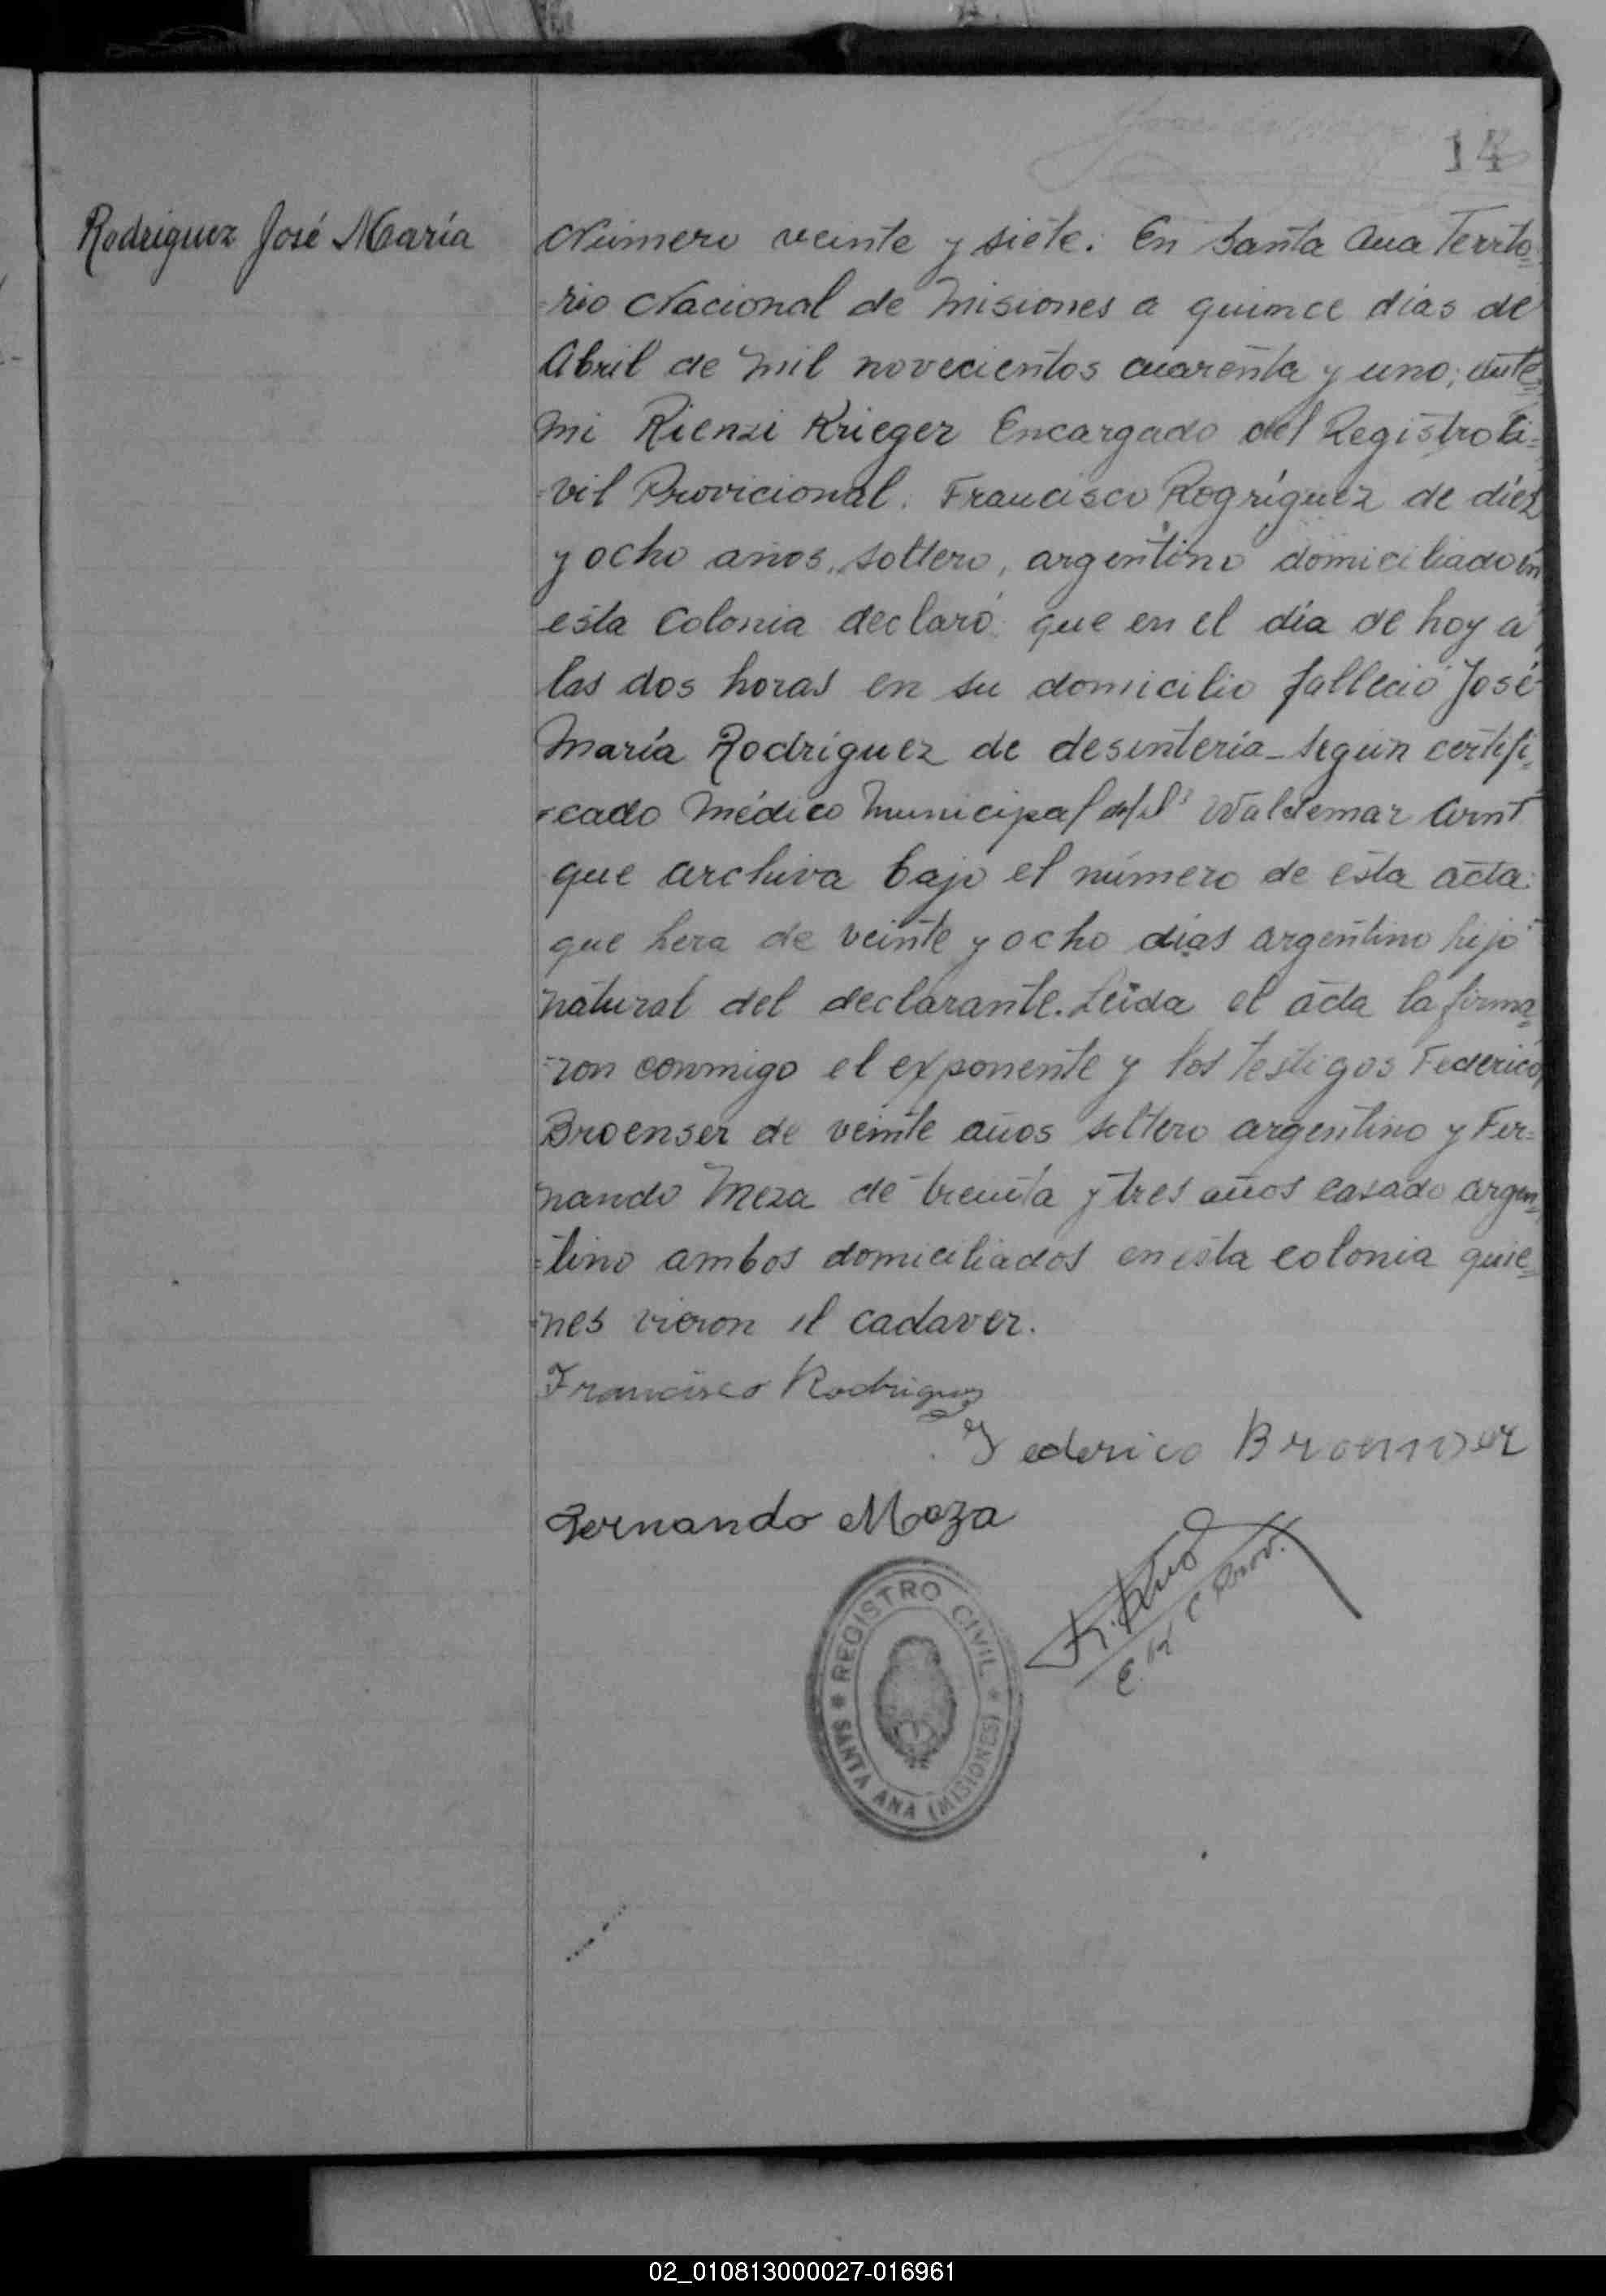 14
Rodriguez José María
Número veinte y siete. En Santa Ana Territo=
=rio Nacional de Misiones a quince días de
Abril de mil novecientos cuarenta y uno; ante
mi Rienzi Krieger Encargado del Registro Ci=
=vil Provicional. Francisco Rogríguez de diez
y ocho años, soltero, argentino domiciliado en
esta Colonia declaró: que en el día de hoy a
las dos horas en su domicilio falleció José
María Rodríguez de desintería - según certifi=
=cado Médico Municipal del Waldemar Arnt
que archiva bajo el número de esta acta:
que hera de veinte y ocho días argentino hijo
natural del declarante. Leida el acta la firma=
=ron conmigo el exponente y los testigos Federico
Broenser de veinte años soltero argentino y Fer=
nando Meza de treinta y tres años casado argen=
=tino ambos domiciliados en esta colonia quie=
=nes vieron el cadaver.
Francisco Rodriguez
Federico Broenser
Fernando Meza
REGISTRO CIVIL
SANTA ANA (MISIONES)
02_010813000027-016961